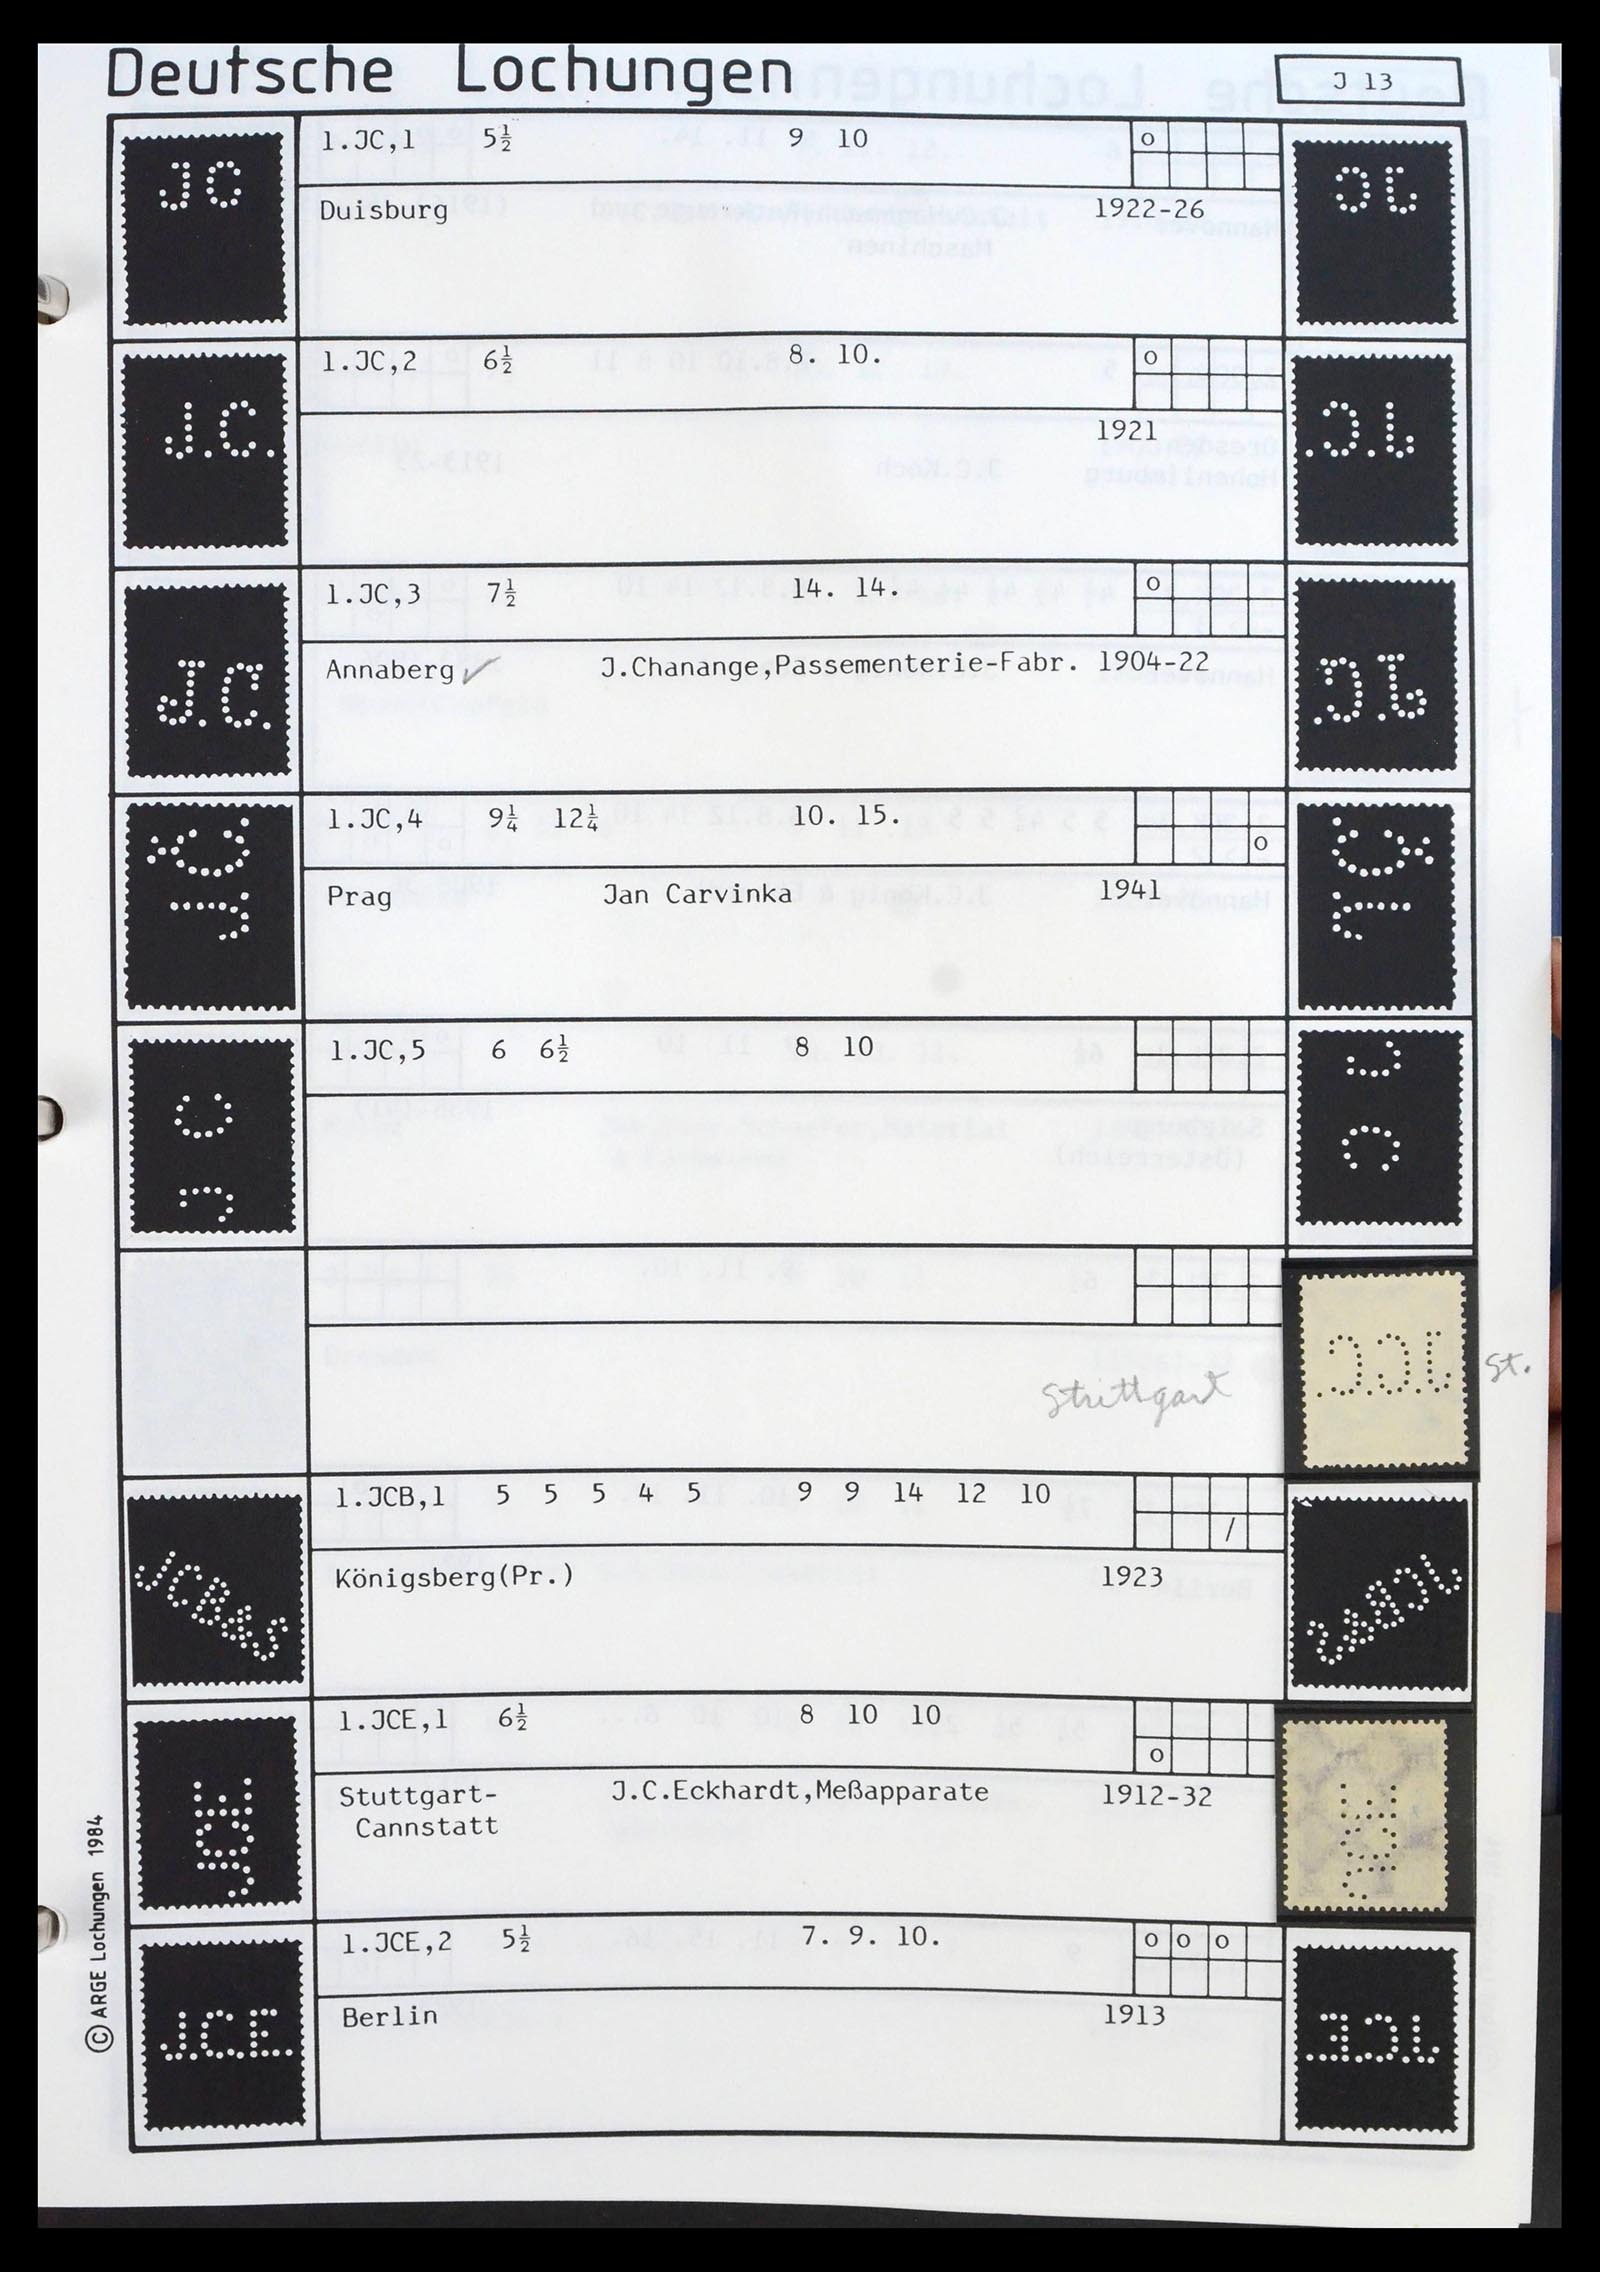 Deutsche Lochungen
J 13
JC
1.JC,1 5½ 9 10 o
Duisburg 1922-26
J.C.
1.JC,2 6½ 8. 10. o
1921
J.C.
1.JC,3 7½ 14. 14. o
Annaberg ✓ J.Chanange,Passementerie-Fabr. 1904-22
J.Č.
1.JC,4 9¼ 12¼ 10. 15. o
Prag Jan Carvinka 1941
J C
1.JC,5 6 6½ 8 10
J.C.C.
Stuttgart St.
JCB&S
1.JCB,1 5 5 5 4 5 9 9 14 12 10 /
Königsberg(Pr.) 1923
JCE
1.JCE,1 6½ 8 10 10 o
Stuttgart- J.C.Eckhardt,Meßapparate 1912-32
Cannstatt
J.C.E.
1.JCE,2 5½ 7. 9. 10. o o o
Berlin 1913
© ARGE Lochungen 1984